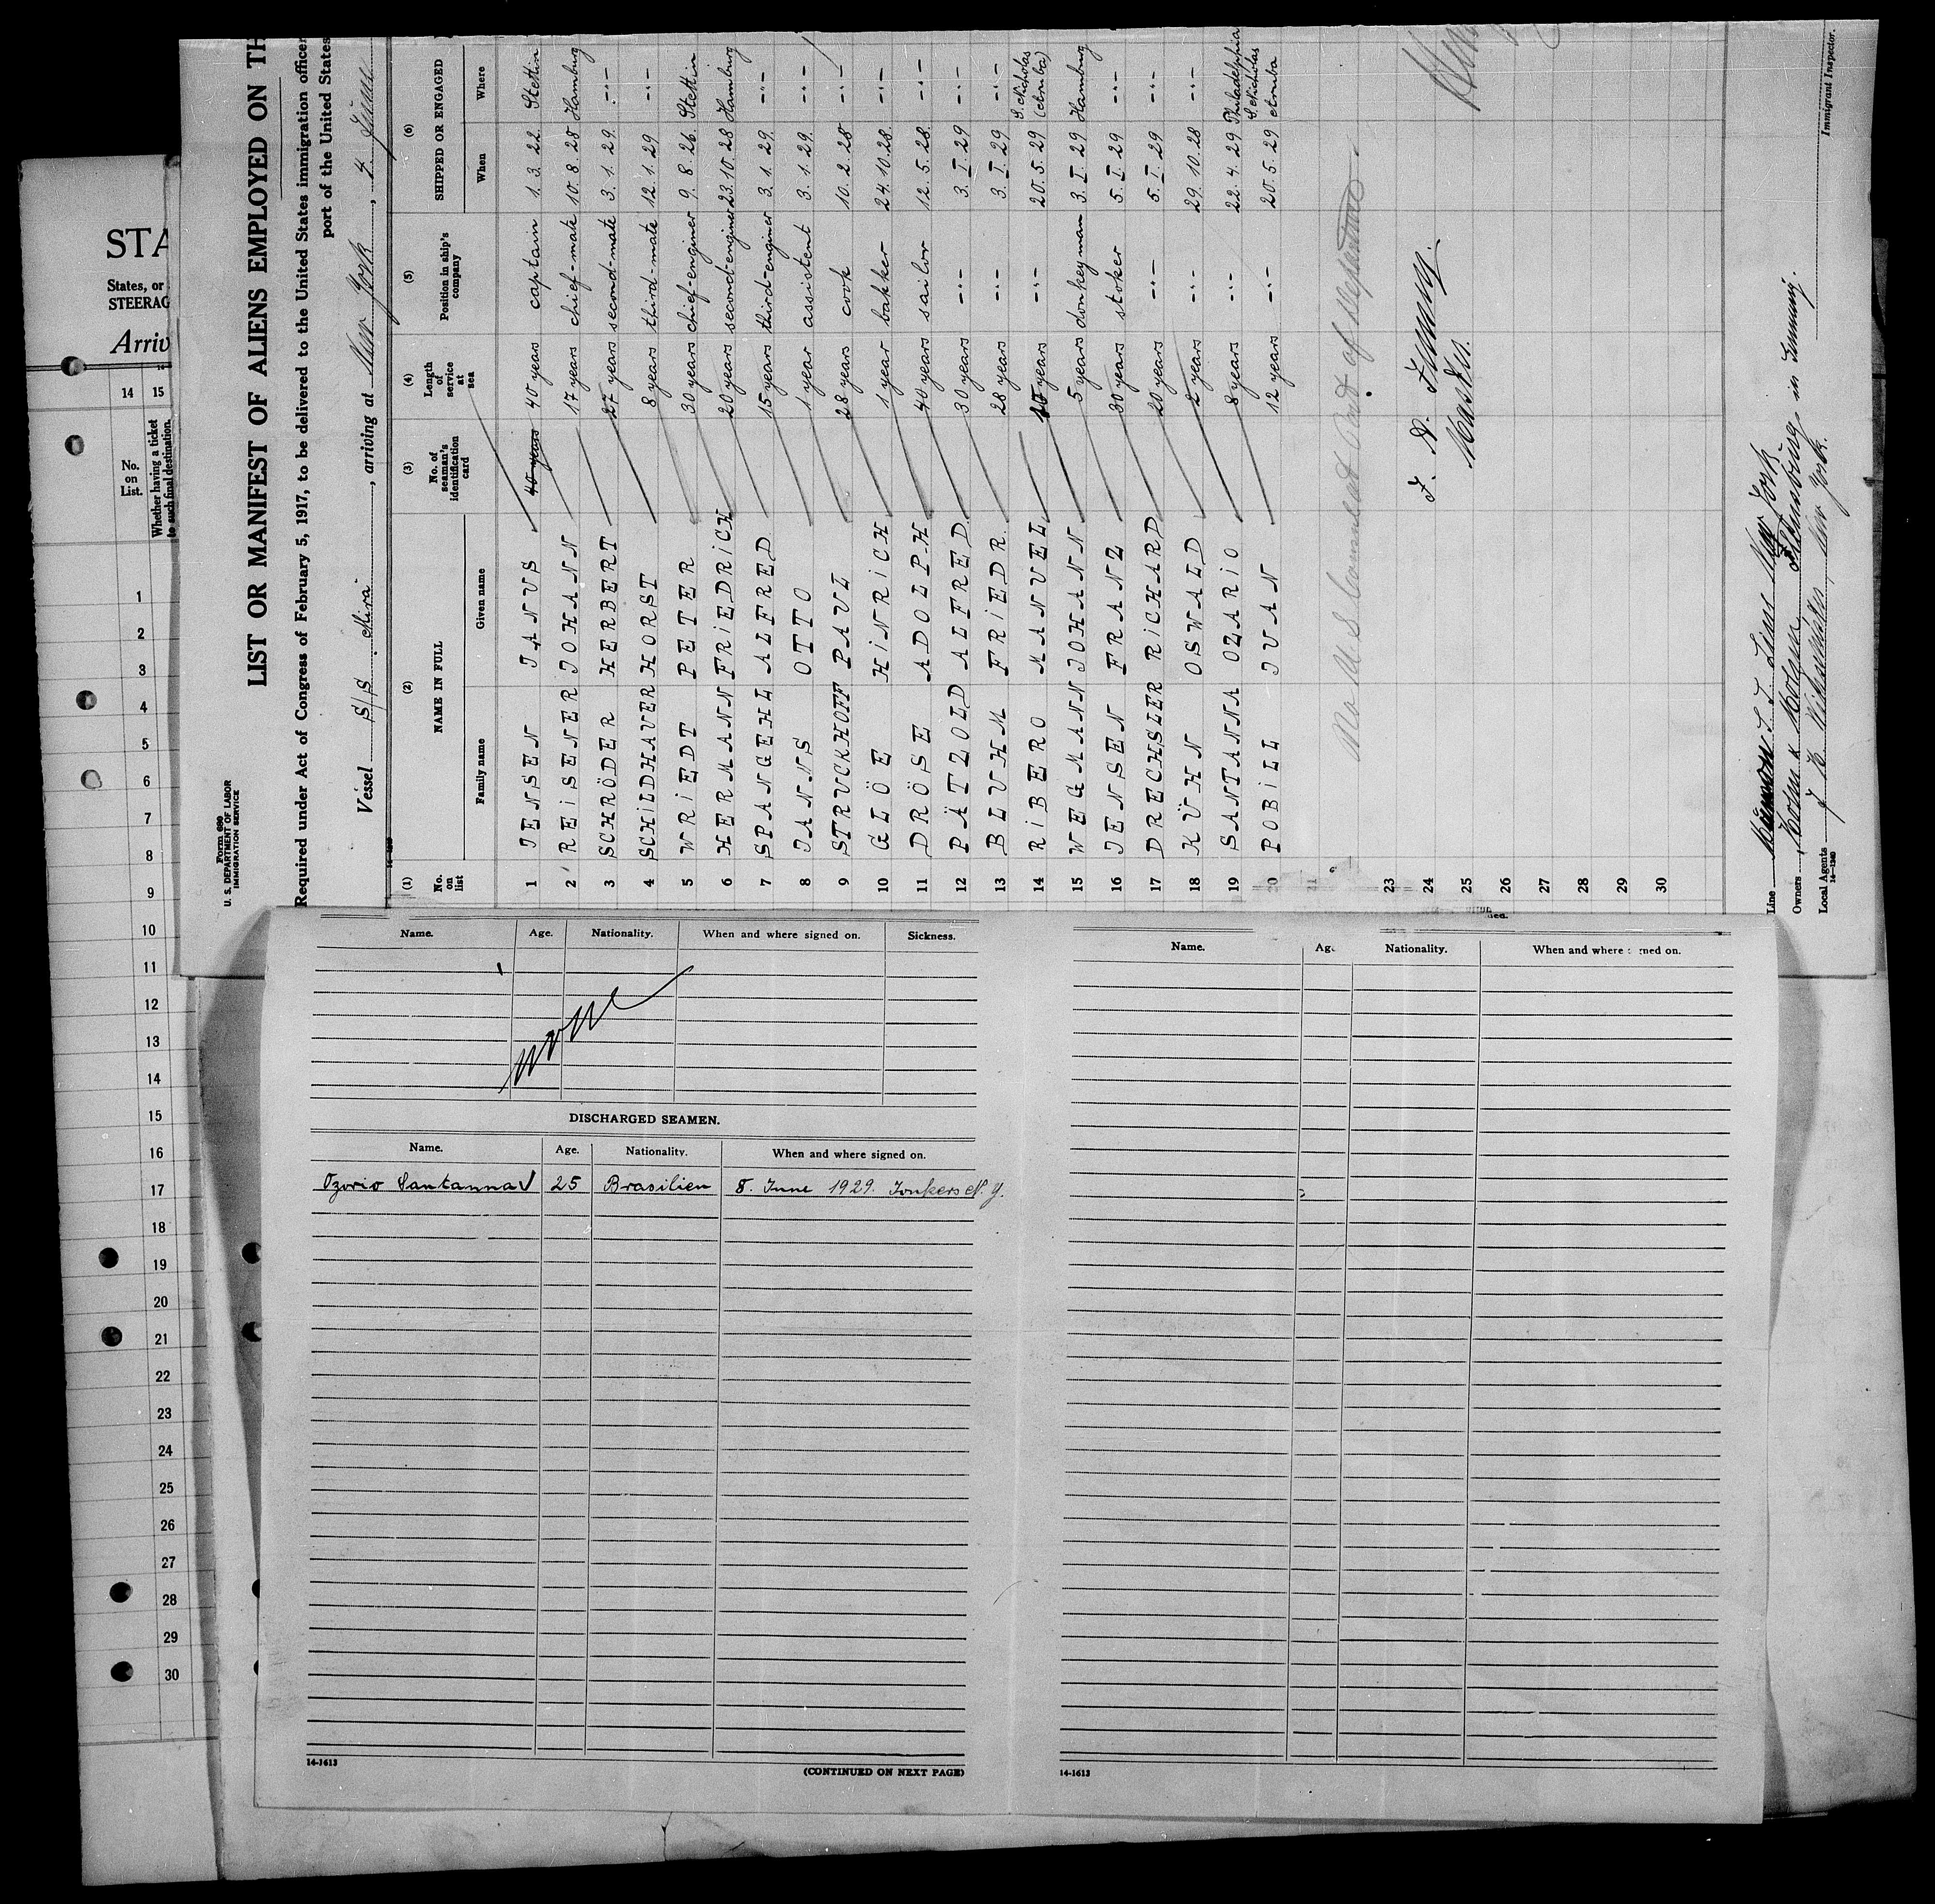 STA
States, or
STEERAG
Arriv
14 15
No. on List.
Whether having a ticket to such final destination.
1
2
3
4
5
6
7
8
9
10
11
12
13
14
15
16
17
18
19
20
21
22
23
24
25
26
27
28
29
30
Form 680
U. S. DEPARTMENT OF LABOR
IMMIGRATION SERVICE
LIST OR MANIFEST OF ALIENS EMPLOYED ON TH
Required under Act of Congress of February 5, 1917, to be delivered to the United States immigration officer
port of the United States
Vessel S/S Mira, arriving at New York, 4. June
(1) (2) (3) (4) (5) (6)
No. on list NAME IN FULL No. of seaman's identification card Length of service at sea Position in ship's company SHIPPED OR ENGAGED
Family name Given name When Where
1 JENSEN JANUS 40 years 40 years captain 1. 3. 22. Stettin
2 REISENER JOHANN 17 years chief-mate 10. 8. 28 Hamburg
3 SCHRÖDER HERBERT 27 years second-mate 3. 1. 29. -"-
4 SCHILDHAUER HORST 8 years third-mate 12. 1. 29 -"-
5 WRIEDT PETER 30 years chief-enginer 9. 8. 26. Stettin
6 HERMANN FRIEDRICH 20 years second-enginer 23. 10. 28 Hamburg
7 SPANGEHL ALFRED 15 years third-enginer 3. 1. 29. -"-
8 JANNS OTTO 1 year assistent 3. 1. 29. -"-
9 STRUCKHOFF PAUL 28 years cook 10. 2. 28 -"-
10 GLÖE HINRICH 1 year bakker 24. 10. 28. -"-
11 DRÖSE ADOLPH 40 years sailor 12. 5. 28. -"-
12 PÄTZOLD ALFRED 30 years -"- 3. I. 29 -"-
13 BLUHM FRIEDR. 28 years -"- 3. I. 29 -"-
14 RIBERO MANUEL 10 years -"- 20. 5. 29 S. Nicholas (Aruba)
15 WEGMANN JOHANN 5 years donkeyman 3. I. 29 Hamburg
16 JENSEN FRANZ 30 years stoker 5. I. 29 -"-
17 DRECHSLER RICHARD 20 years -"- 5. I. 29 -"-
18 KÜHN OSWALD 2 years -"- 29. 10. 28 -"-
19 SANTANNA OZARIO 8 years -"- 22. 4. 29 Philadelphia
20 POBILL JUAN 12 years -"- 20. 5. 29 S. Nicholas Aruba
21
23
24
25
26
27
28
29
30
No U. S. Consulate at Port of Departure.
Master.
Line New York
Owners in Flensburg
Local Agents New York.
14-1240
Immigrant Inspector.
Name. Age. Nationality. When and where signed on. Sickness.
none
DISCHARGED SEAMEN.
Name. Age. Nationality. When and where signed on.
Ozorio Santanna 25 Brasilien 8. June 1929. Jonkers N. Y.
14-1613
(CONTINUED ON NEXT PAGE)
Name. Age Nationality. When and where signed on.
14-1613